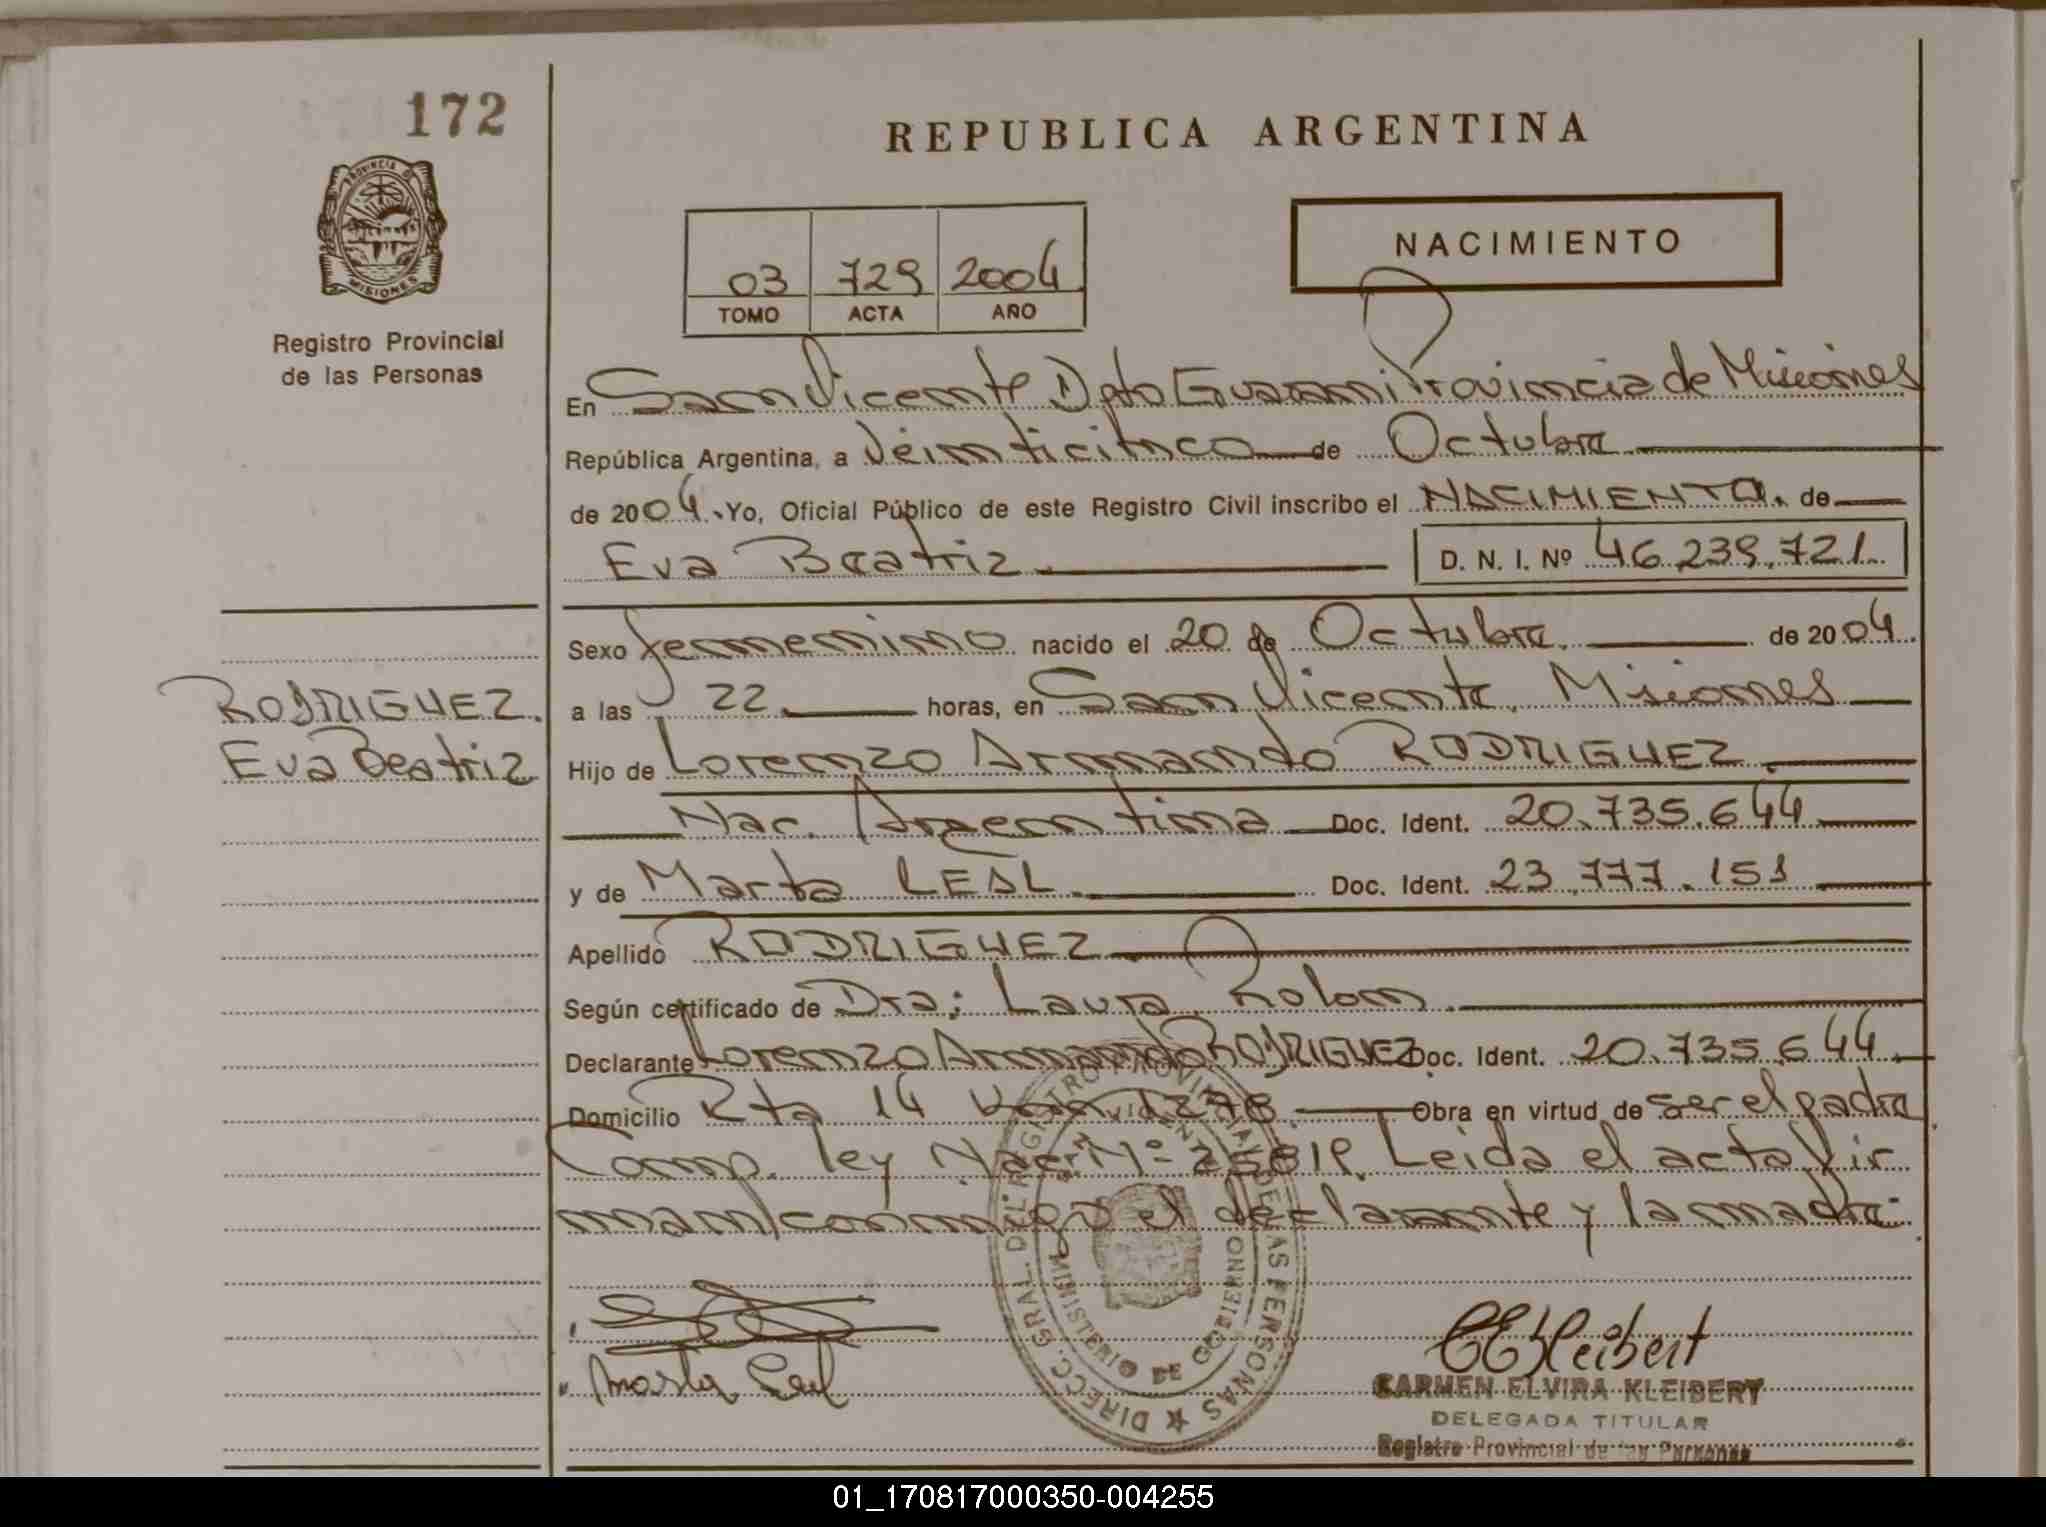 172
PROVINCIA DE
MISIONES
Registro Provincial
de las Personas
REPUBLICA ARGENTINA
NACIMIENTO
03 729 2004
TOMO ACTA AÑO
En San Vicente Dpto Guarani Provincia de Misiones
República Argentina, a Veinticinco de Octubre
de 2004. Yo, Oficial Público de este Registro Civil inscribo el NACIMIENTO. de
Eva Beatriz D. N. I. Nº 46.239.721.
Sexo femenino nacido el 20 de Octubre. de 2004.
RODRIGUEZ. a las 22 horas, en San Vicente, Misiones
Eva Beatriz Hijo de Lorenzo Armando RODRIGUEZ.
Nac. Argentina Doc. Ident. 20.735.644
y de Marta LEAL. Doc. Ident. 23.777.151
Apellido RODRIGUEZ
Según certificado de Dra: Laura Rolon.
Declarante Lorenzo Armando RODRIGUEZ Doc. Ident. 20.735.644
Domicilio Rta 14 Km 1278. Obra en virtud de ser el padre
Comp. ley Nac. Nº 25819. Leida el acta fir
man conmigo el declarante y la madre.
Marta Leal
CEKleibert
CARMEN ELVIRA KLEIBERT
DELEGADA TITULAR
Registro Provincial de las Personas
DIRECC. GRAL. DEL REGISTRO PROVINCIAL DE LAS PERSONAS
SAN VICENTE
MINISTERIO DE GOBIERNO
01_170817000350-004255